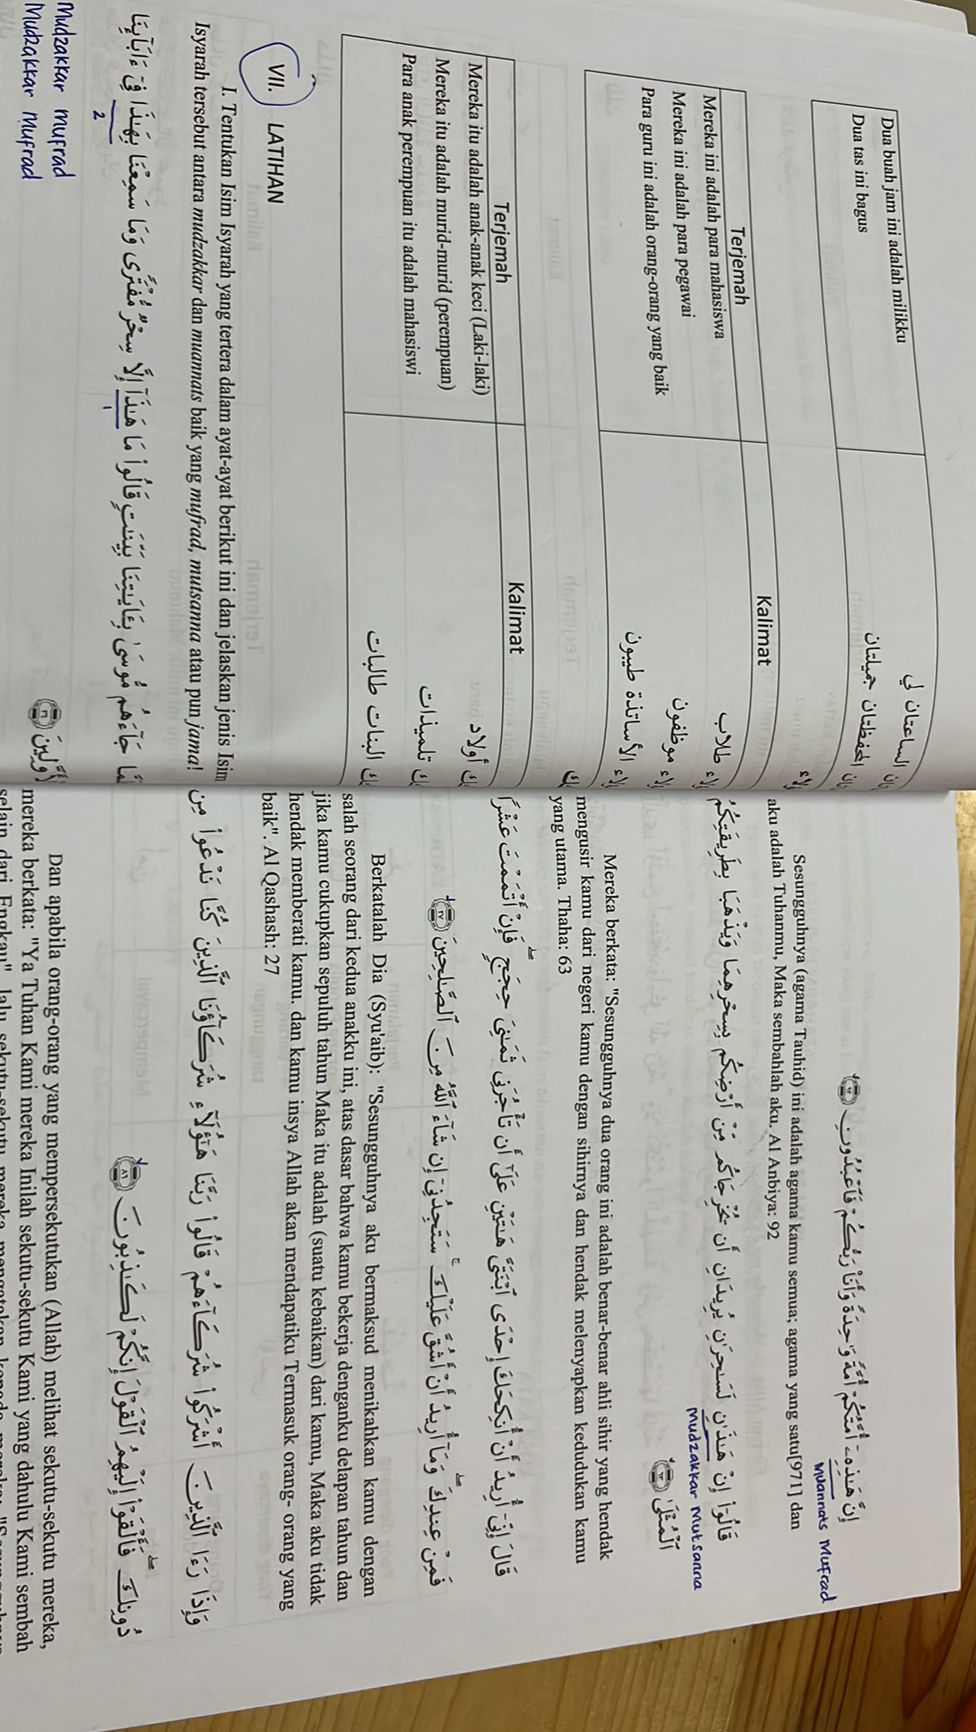 Dua buah jam ini adalah milikku
ان الساعتان لي
Dua tas ini bagus
ان المحفظتان جميلتان
Terjemah
Kalimat
Mereka ini adalah para mahasiswa
لاء طلاب
Mereka ini adalah para pegawai
لاء موظفون
Para guru ini adalah orang-orang yang baik
لاء الأساتذة طيبون
Terjemah
Kalimat
Mereka itu adalah anak-anak keci (Laki-laki)
ك أولاد
Mereka itu adalah murid-murid (perempuan)
ك تلميذات
Para anak perempuan itu adalah mahasiswi
ك البنات طالبات
VII. LATIHAN
I. Tentukan Isim Isyarah yang tertera dalam ayat-ayat berikut ini dan jelaskan jenis Isim
Isyarah tersebut antara mudzakkar dan muannats baik yang mufrad, mutsanna atau pun jama!
مَّا جَآءَهُم مُّوسَىٰ بِـَٔايَـٰتِنَا بَيِّنَـٰتٍ قَالُوا۟ مَا هَـٰذَآ إِلَّا سِحْرٌ مُّفْتَرًى وَمَا سَمِعْنَا بِهَـٰذَا فِىٓ ءَابَآئِنَا
1
2
أَوَّلِينَ ٣٦
Mudzakkar mufrad
Mudzakkar Mufrad
إِنَّ هَـٰذِهِۦٓ أُمَّتُكُمْ أُمَّةً وَٰحِدَةً وَأَنَا۠ رَبُّكُمْ فَٱعْبُدُونِ ٩٢
Muannats Mufrad
Sesungguhnya (agama Tauhid) ini adalah agama kamu semua; agama yang satu[971] dan
aku adalah Tuhanmu, Maka sembahlah aku. Al Anbiya: 92
قَالُوٓا۟ إِنْ هَـٰذَٰنِ لَسَـٰحِرَٰنِ يُرِيدَانِ أَن يُخْرِجَاكُم مِّنْ أَرْضِكُم بِسِحْرِهِمَا وَيَذْهَبَا بِطَرِيقَتِكُمُ
Mudzakkar Mutsanna
ٱلْمُثْلَىٰ ٦٣
Mereka berkata: "Sesungguhnya dua orang ini adalah benar-benar ahli sihir yang hendak
mengusir kamu dari negeri kamu dengan sihirnya dan hendak melenyapkan kedudukan kamu
yang utama. Thaha: 63
قَالَ إِنِّىٓ أُرِيدُ أَنْ أُنكِحَكَ إِحْدَى ٱبْنَتَىَّ هَـٰتَيْنِ عَلَىٰٓ أَن تَأْجُرَنِى ثَمَـٰنِىَ حِجَجٍ ۖ فَإِنْ أَتْمَمْتَ عَشْرًا
فَمِنْ عِندِكَ ۖ وَمَآ أُرِيدُ أَنْ أَشُقَّ عَلَيْكَ ۚ سَتَجِدُنِىٓ إِن شَآءَ ٱللَّهُ مِنَ ٱلصَّـٰلِحِينَ ٢٧
Berkatalah Dia (Syu'aib): "Sesungguhnya aku bermaksud menikahkan kamu dengan
salah seorang dari kedua anakku ini, atas dasar bahwa kamu bekerja denganku delapan tahun dan
jika kamu cukupkan sepuluh tahun Maka itu adalah (suatu kebaikan) dari kamu, Maka aku tidak
hendak memberati kamu. dan kamu insya Allah akan mendapatiku Termasuk orang- orang yang
baik". Al Qashash: 27
وَإِذَا رَءَا ٱلَّذِينَ أَشْرَكُوا۟ شُرَكَآءَهُمْ قَالُوا۟ رَبَّنَا هَـٰٓؤُلَآءِ شُرَكَآؤُنَا ٱلَّذِينَ كُنَّا نَدْعُوا۟ مِن
دُونِكَ ۖ فَأَلْقَوْا۟ إِلَيْهِمُ ٱلْقَوْلَ إِنَّكُمْ لَكَـٰذِبُونَ ٨٦
Dan apabila orang-orang yang mempersekutukan (Allah) melihat sekutu-sekutu mereka,
mereka berkata: "Ya Tuhan Kami mereka Inilah sekutu-sekutu Kami yang dahulu Kami sembah
selain dari Engkau". lalu sekutu-sekutu mereka mengatakan kepada mereka: